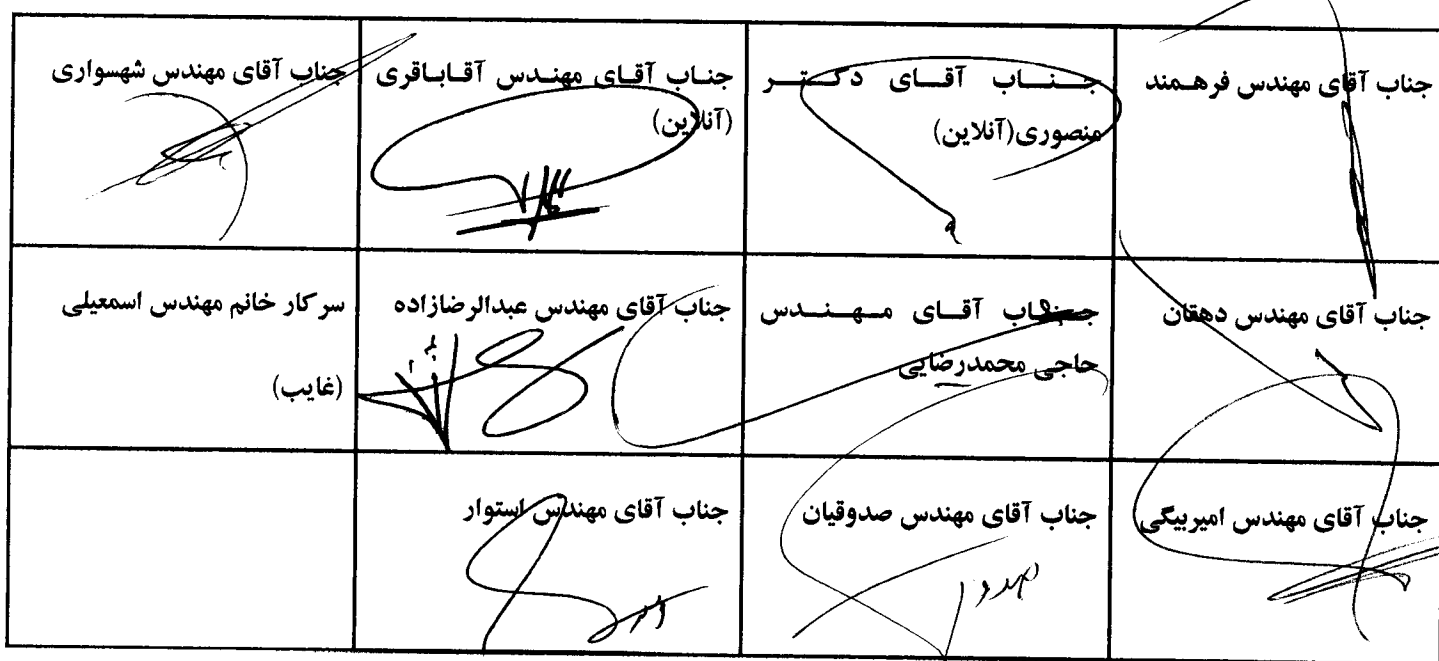 جناب آقای مهندس فرهمند
جناب آقای دکتر
منصوری(آنلاین)
جناب آقای مهندس آقاباقری
(آنلاین)
جناب آقای مهندس شهسواری
جناب آقای مهندس دهقان
جناب آقای مهندس
حاجی محمدرضایی
جناب آقای مهندس عبدالرضازاده
سرکار خانم مهندس اسمعیلی
(غایب)
جناب آقای مهندس امیربیگی
جناب آقای مهندس صدوقیان
جناب آقای مهندس استوار